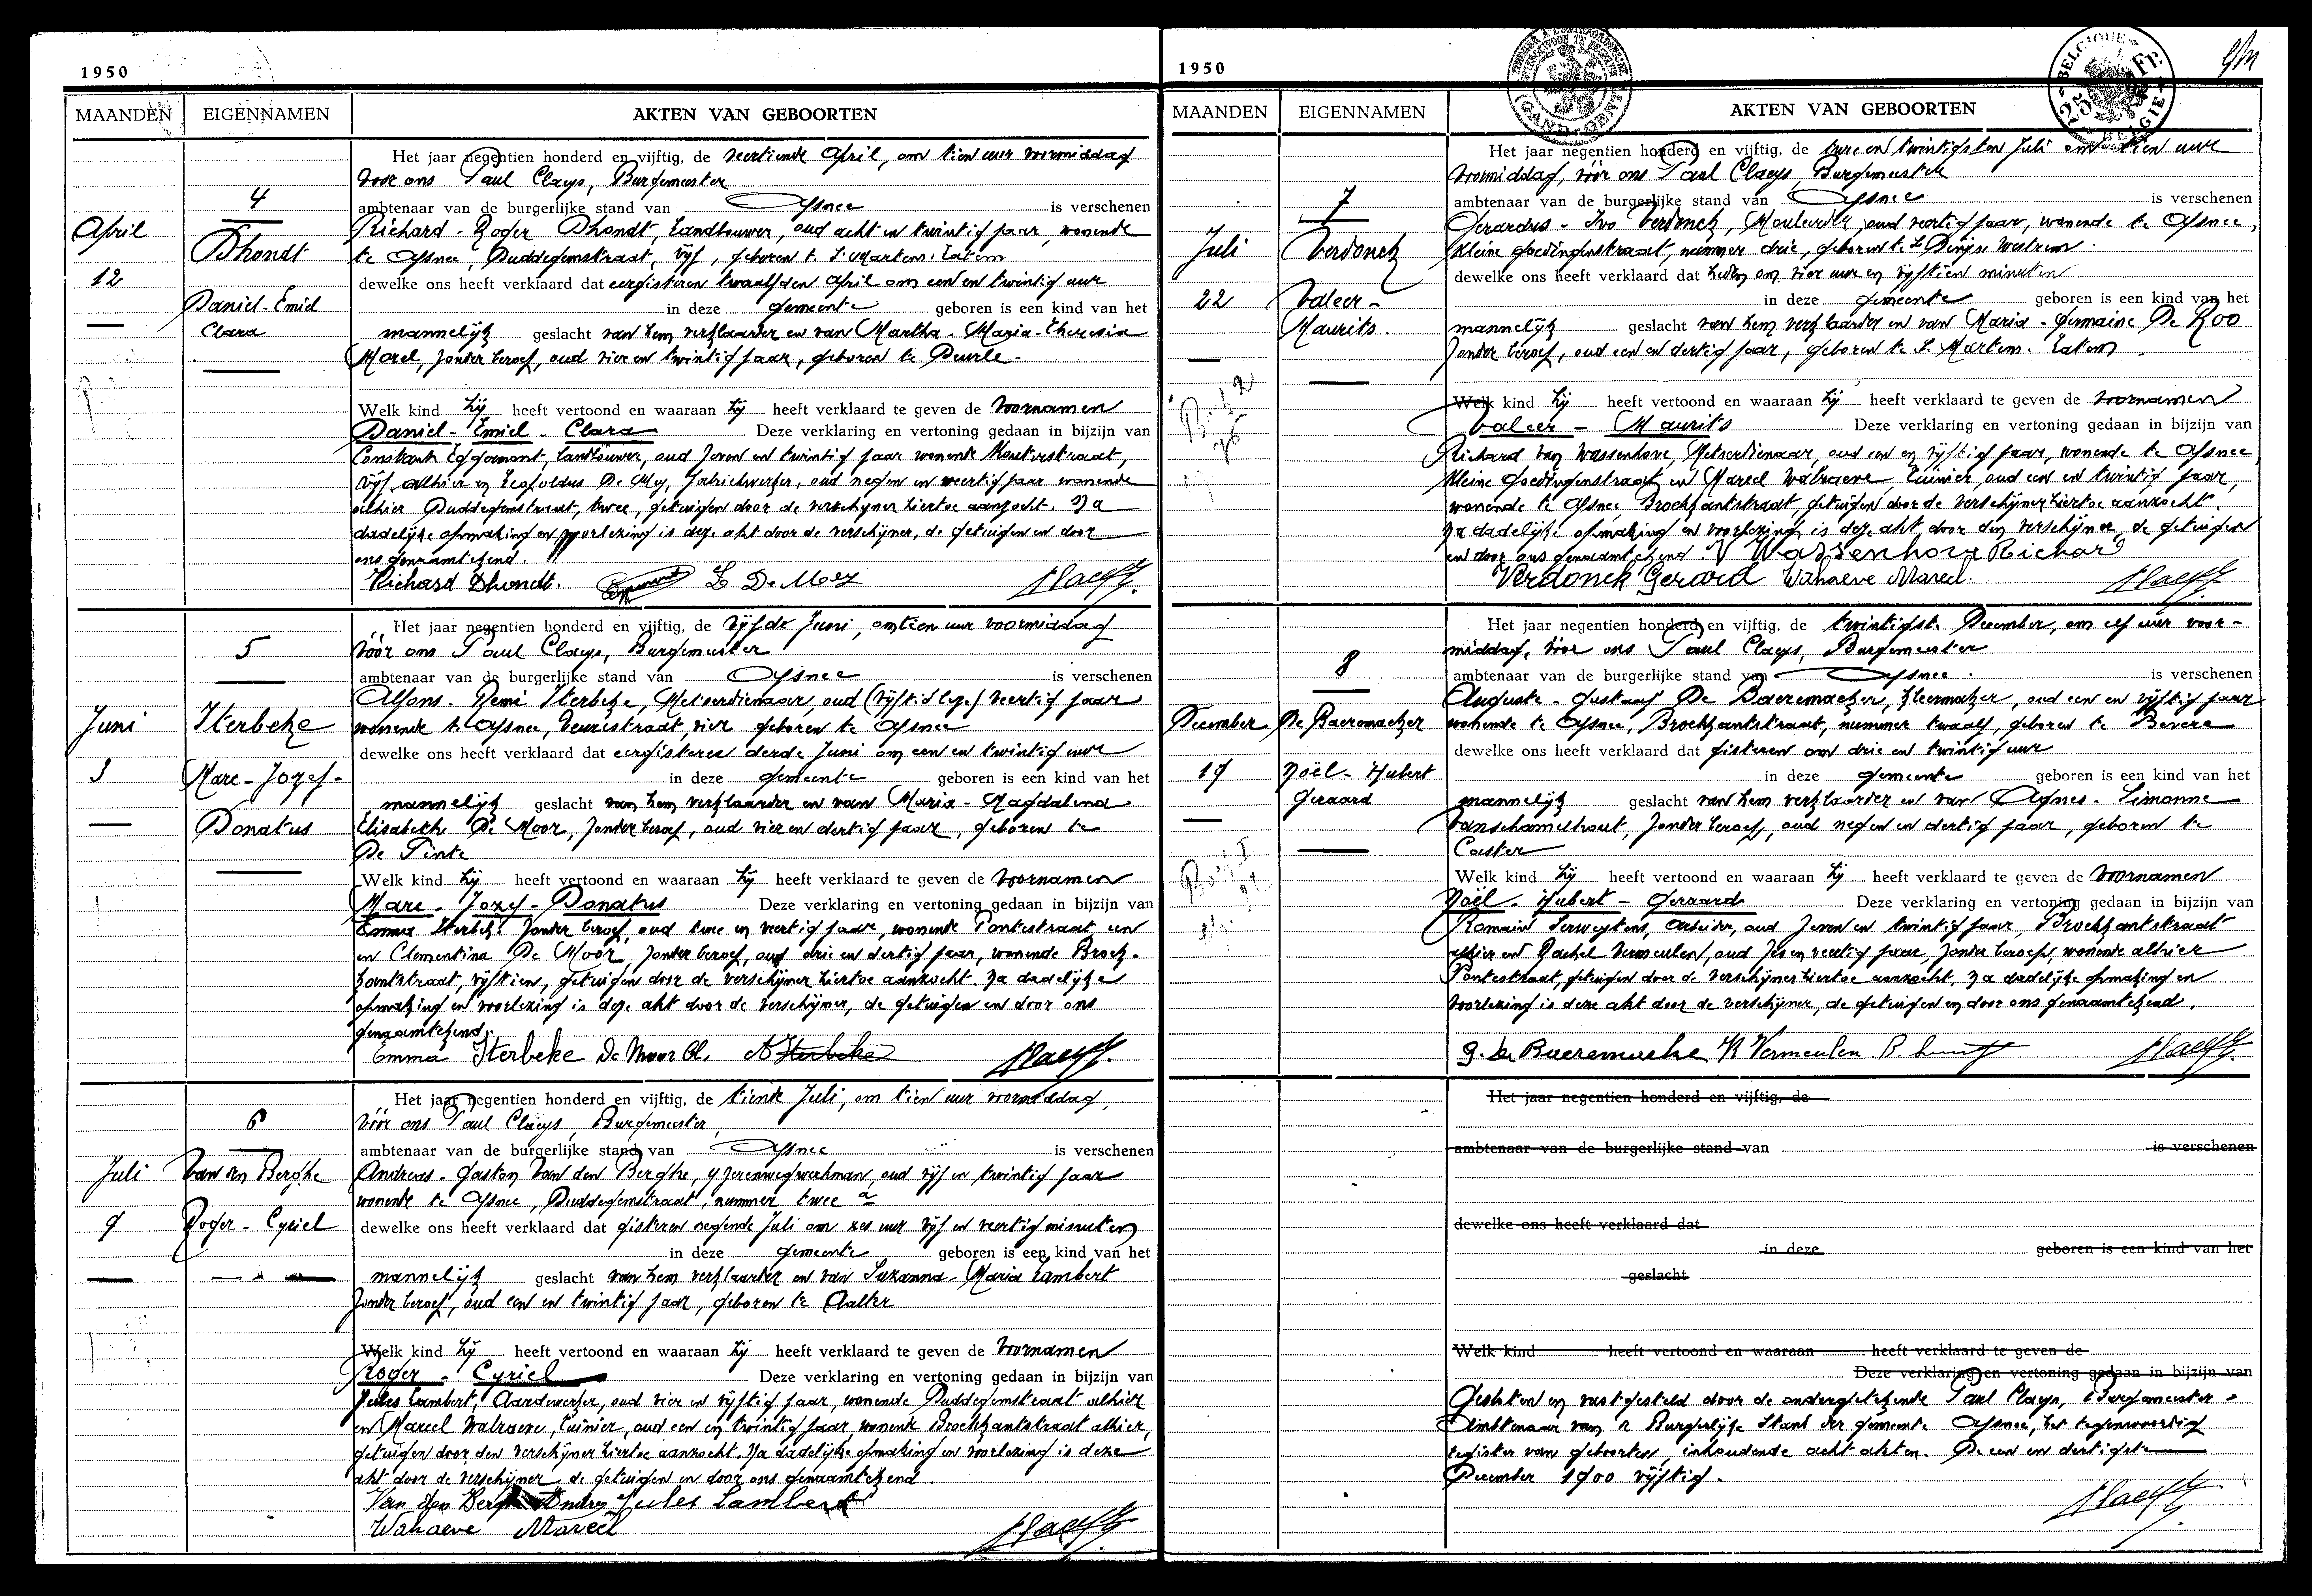 1950
MAANDEN EIGENNAMEN AKTEN VAN GEBOORTEN
Het jaar negentien honderd en vijftig, de veertiende April, om tien uur voormiddag
voor ons Paul Claeys, Burgemeester
4
ambtenaar van de burgerlijke stand van Afsnee is verschenen
April
Dhondt
Richard - Roger Dhondt, Landbouwer, oud acht en twintig jaar, wonende
te Afsnee, Duddegemstraat, vijf, geboren te St Martens-Latem
12
dewelke ons heeft verklaard dat eergisteren twaalfden April om een en twintig uur
Daniel-Emiel
Clara
in deze gemeente geboren is een kind van het
mannelijk geslacht van hem verklaarder en van Martha - Maria-Theresia
Morel, zonder beroep, oud vier en twintig jaar, geboren te Deurle -
Welk kind hij heeft vertoond en waaraan hij heeft verklaard te geven de voornamen
Daniel - Emiel - Clara Deze verklaring en vertoning gedaan in bijzijn van
Constant Eggermont, landbouwer, oud zeven en twintig jaar wonende Kouterstraat,
vijf alhier en Leopoldus De Mey, fabriekwerker, oud negen en veertig jaar wonende
alhier Duddegemstraat, twee, getuigen door de verschijner hiertoe aanzocht. Na
dadelijke opmaking en voorlezing is deze akt door de verschijner, de getuigen en door
ons genaamtekend.
Richard Dhondt. L De Mey
5
Het jaar negentien honderd en vijftig, de vijfde Juni, om tien uur voormiddag
vóór ons Paul Claeys, Burgemeester
ambtenaar van de burgerlijke stand van Afsnee is verschenen
Juni
Sterbeke
Alfons - Remi Sterbeke, Metserdienaar oud (vijftig lege) veertig jaar
wonende te Afsnee, Veurestraat, vier geboren te Afsnee
dewelke ons heeft verklaard dat eergisteren derde Juni om een en twintig uur
3
Marc - Jozef -
Donatus
in deze gemeente geboren is een kind van het
mannelijk geslacht van hem verklaarder en van Maria - Magdalena
Elisabeth De Moor, zonder beroep, oud vier en dertig jaar, geboren te
De Pinte
Welk kind hij heeft vertoond en waaraan hij heeft verklaard te geven de voornamen
Marc - Jozef - Donatus Deze verklaring en vertoning gedaan in bijzijn van
Emma Sterbeke zonder beroep, oud twee en veertig jaar, wonende Pontestraat een
en Clementina De Moor, zonder beroep, oud drie en dertig jaar, wonende Broek-
kantstraat, vijftien, getuigen door de verschijner hiertoe aanzocht. Na dadelijke
opmaking en voorlezing is deze akt door de verschijner, de getuigen en door ons
genaamtekend.
Emma Sterbeke De Moor Cl. A Sterbeke
6
Het jaar negentien honderd en vijftig, de tiende Juli, om tien uur voormiddag,
vóór ons Paul Claeys, Burgemeester,
ambtenaar van de burgerlijke stand van Afsnee is verschenen
Juli
Van den Berghe
Andreas - Gaston Van den Berghe, ijzerenwegwerkman, oud vijf en twintig jaar
wonende te Afsnee, Duddegemstraat, nummer twee a
9
Roger - Cyriel
dewelke ons heeft verklaard dat gisteren negende Juli om zes uur vijf en veertig minuten
in deze gemeente geboren is een kind van het
mannelijk geslacht van hem verklaarder en van Suzanna - Maria Lambert
zonder beroep, oud een en twintig jaar, geboren te Aalter
Welk kind hij heeft vertoond en waaraan hij heeft verklaard te geven de voornamen
Roger - Cyriel Deze verklaring en vertoning gedaan in bijzijn van
Jules Lambert, Aardewerker, oud vier en vijftig jaar, wonende Duddegemstraat alhier
en Marcel Walraeve, tuinier, oud een en twintig jaar, wonende Broekkantstraat alhier,
getuigen door den verschijner hiertoe aanzocht. Na dadelijke opmaking en voorlezing is deze
akt door de verschijner, de getuigen en door ons genaamtekend
Van den Berghe Andre Jules Lambert
Walraeve Marcel
1950
MAANDEN EIGENNAMEN AKTEN VAN GEBOORTEN
Het jaar negentien honderd en vijftig, de twee en twintigsten Juli om tien uur
voormiddag, vóór ons Paul Claeys, Burgemeester
7
ambtenaar van de burgerlijke stand van Afsnee is verschenen
Juli
Verdonck
Gerardus - Ivo Verdonck, Mouleerder, oud veertig jaar, wonende te Afsnee,
Kleine Goedingenstraat, nummer drie, geboren te St Denijs Westrem.
dewelke ons heeft verklaard dat heden om vier uur en vijftien minuten
22
Valeer -
Maurits.
in deze gemeente geboren is een kind van het
mannelijk geslacht van hem verklaarder en van Maria - Germaine De Roo
zonder beroep, oud een en dertig jaar, geboren te St. Martens. Latem
Welk kind hij heeft vertoond en waaraan hij heeft verklaard te geven de voornamen
Valeer - Maurits Deze verklaring en vertoning gedaan in bijzijn van
Richard Van Wassenhove, Metserdienaar, oud een en vijftig jaar, wonende te Afsnee,
Kleine Goedingenstraat en Marcel Walraeve Tuinier oud een en twintig jaar,
wonende te Afsnee Broekkantstraat, getuigen door de verschijner hiertoe aanzocht
Na dadelijke opmaking en voorlezing is deze akt door den verschijner, de getuigen
en door ons genaamtekend. V Wassenhove Richard
Verdonck Gerard Walraeve Marcel.
8
Het jaar negentien honderd en vijftig, de twintigste December, om elf uur voor-
middag, vóór ons Paul Claeys, Burgemeester
ambtenaar van de burgerlijke stand van Afsnee. is verschenen
December
De Baeremaeker
Auguste - Gustaaf De Baeremaeker, kleermaker, oud een en vijftig jaar
wonende te Afsnee, Broekkantstraat, nummer twaalf, geboren te Bevere
dewelke ons heeft verklaard dat gisteren om drie en twintig uur
19
Noël - Hubert
Geraard
in deze gemeente geboren is een kind van het
mannelijk geslacht van hem verklaarder en van Agnes - Simonne
Vanschamelhout, zonder beroep, oud negen en dertig jaar, geboren te
Caster
Welk kind hij heeft vertoond en waaraan hij heeft verklaard te geven de voornamen
Noël - Hubert - Geraard Deze verklaring en vertoning gedaan in bijzijn van
Romain Serweytens, arbeider, oud zeven en twintig jaar Broekkantstraat
alhier en Rachel Vermeulen, oud zes en veertig jaar, zonder beroep, wonende alhier
Pontestraat, getuigen door de verschijner hiertoe aanzocht, na dadelijke opmaking en
voorlezing is deze akt door de verschijner, de getuigen en door ons genaamtekend.
G. De Baeremaeke R Vermeulen
Het jaar negentien honderd en vijftig, de
ambtenaar van de burgerlijke stand van is verschenen
dewelke ons heeft verklaard dat
in deze geboren is een kind van het
geslacht
Welk kind heeft vertoond en waaraan heeft verklaard te geven de
Deze verklaring en vertoning gedaan in bijzijn van
Gesloten en vastgesteld door de ondergetekende Paul Claeys, Burgemeester -
Ambtenaar van de Burgerlijke Stand der gemeente Afsnee, het tegenwoordig
register van geboorten, inhoudende acht akten. De een en dertigste
December 1900 vijftig.